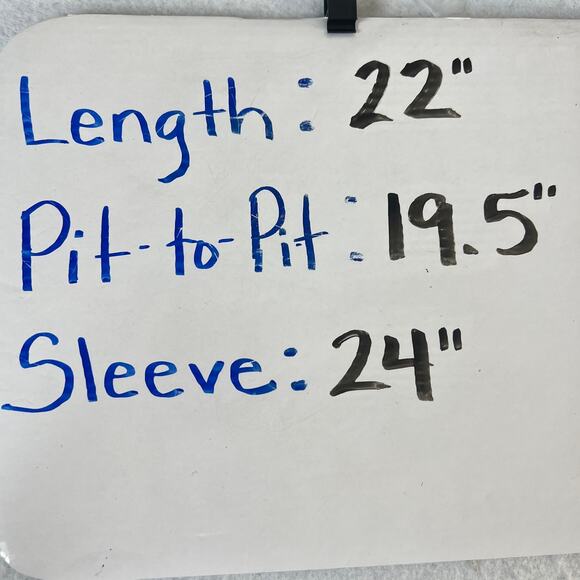 Length: 22"
Pit-to-Pit: 19.5"
Sleeve: 24"